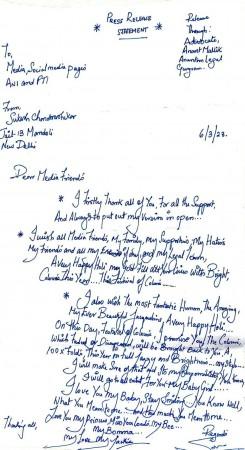 * PRESS RELEASE *
STATEMENT
Release
Through:
Advocate,
Anant Malik
Anantam Legal
Gurgaon.
To,
Media, Social media pages
ANI and PTI
From
Sukesh Chandrashekar
Jail-13 Mandoli
New Delhi
6/3/23.
Dear Media Friends
* I firstly Thank all of You, For all the Support,
And Always to put out my Version in open...
* I wish all Media Friends, My Family, My Supporters, My Haters
My Friends and all my Enemies if any, and my Legal Team,
A very Happy Holi, may God fill all Your Lives With Bright
Colours This Year... This Festival of Colours...
* I also Wish the most Fantastic Human, The Amazing,
My Ever Beautiful Jacqueline, A very Happy Holi...
On This Day, Festival of Colours, I promise You, The Colours,
Which faded or Disappeared, will be Brought Back to You, A
100 X Folds, This Year in full Juzzy and Brightness... my Style...
I will make Sure of that and Its my Responsibility. You Know,
I will go to all extent For You My Baby Girl...
I love You My Baby, Stay Smiling, You Know Well,
What You Mean to me... And How much You Mean to me...
Love You my Princess, Miss You Loads, My Bee...
My Bomma...
my Love, My Jackie...
Thanking all,